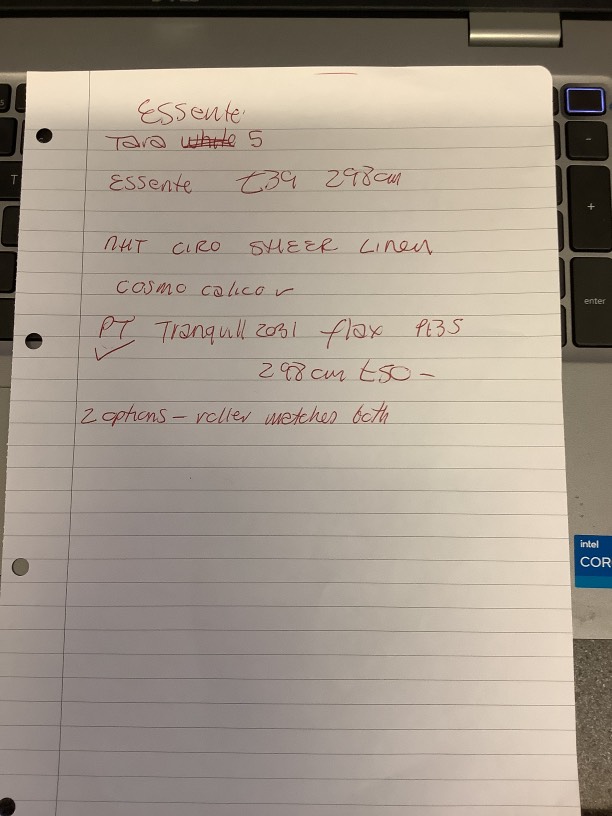 Essente
Tara 5
Essente t39 298cm
NHT CIRO SHEER Linen
cosmo calico ✓
PT Tranqull 2031 flax Pt35
✓
298cm t50 –
2 options – roller matches both
enter
intel
COR